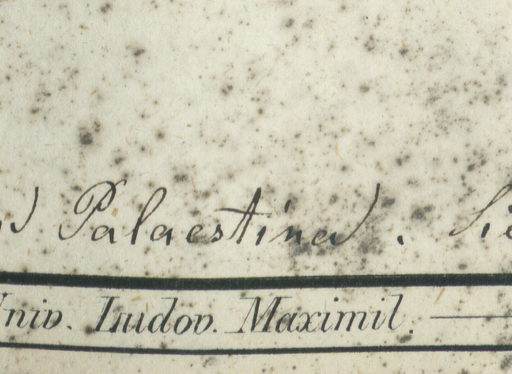 Palaestina.
Univ. Ludov. Maximil.